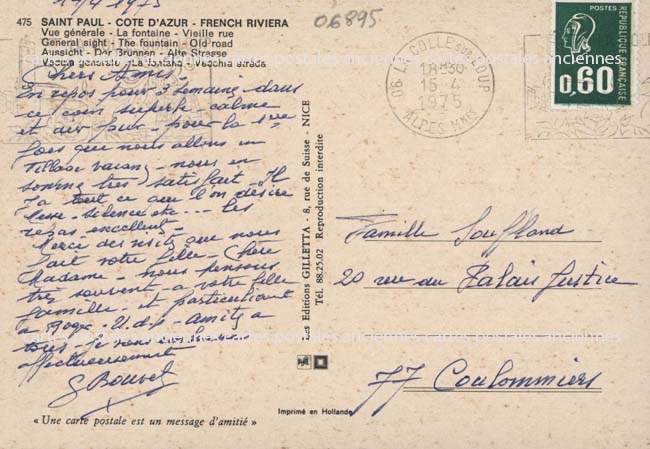 475 SAINT PAUL - COTE D'AZUR - FRENCH RIVIERA
Vue générale - La fontaine - Vieille rue
General sight - The fountain - Old road
Aussicht - Der Brunnen - Alte Strasse
Vecchia strada
06895
Chers Amis.
En repos pour 3 semaine dans
ce coin superbe - calme
et air pur - pour la 1ère
fois que nous allons en
Village vacan - nous en
sommes très satisfait - Il
y a tout ce que l'on désire
Messe - silence etc ... les
repas excellent -
Merci des visite que nous
fait votre fille - Chère
Madame - nous pensons
très souvent a votre fille
famille - et particulièrement
a amitiés a
tous - je vous embrasse
affectueusement
G Bouvet
« Une carte postale est un message d'amitié »
Les Editions GILLETTA - 8, rue de Suisse - NICE
Tél. 88.25.02 Reproduction interdite
Imprimé en Hollande
06 LA COLLE sur LOUP
18H30
15-4
1975
ALPES Mmes
POSTES
REPUBLIQUE FRANÇAISE
0,60
Famille Souffland
20 rue du Palais Justice
77 Coulommiers
cartes postales anciennes